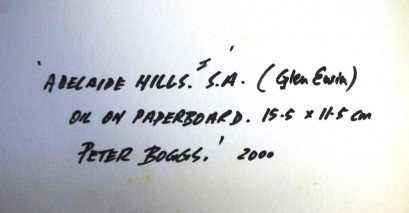 'ADELAIDE HILLS.' S.A. (Glen Ewin)
OIL ON PAPERBOARD. 15.5 x 11.5 cm
PETER BOGGS.' 2000